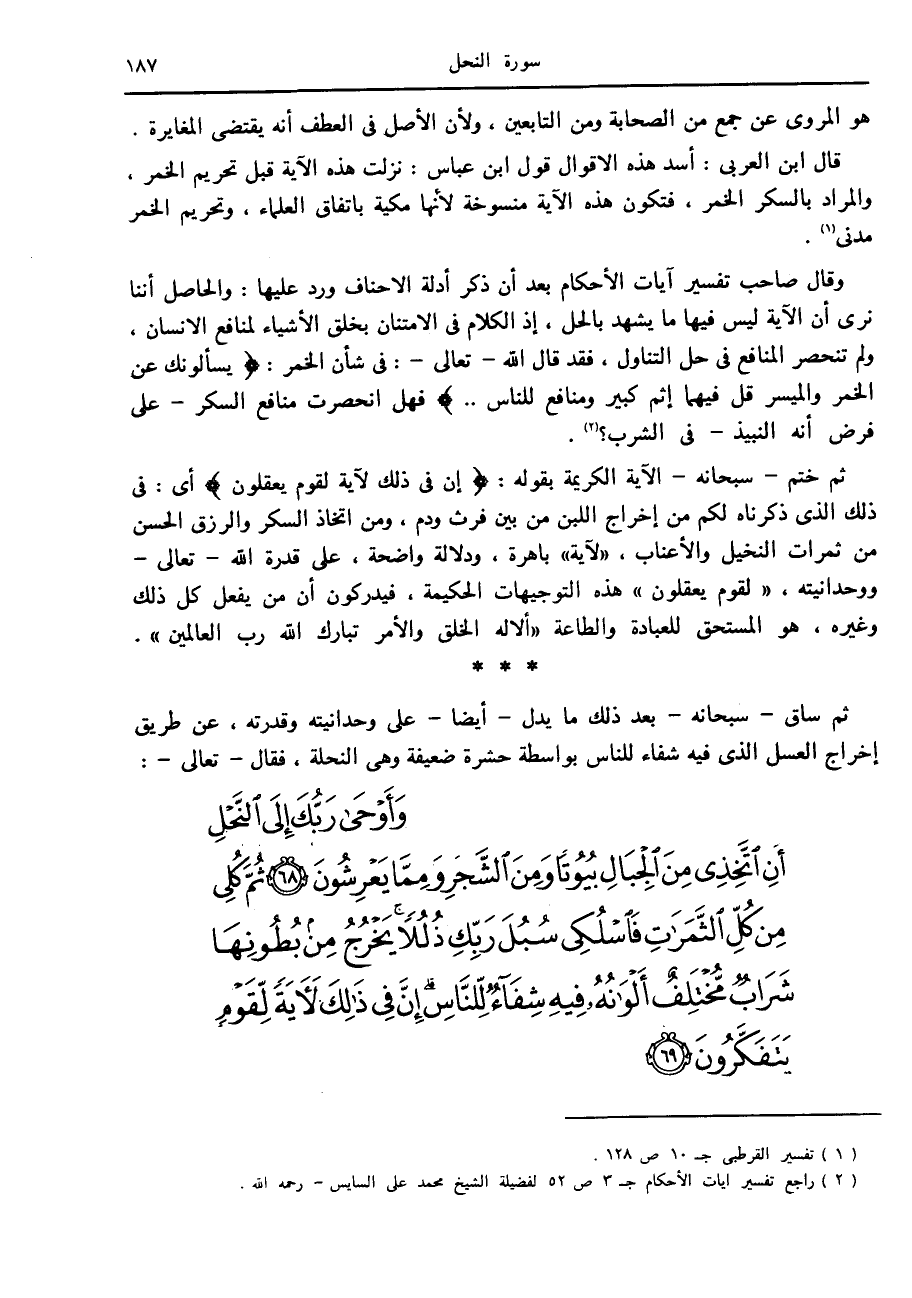 سورة النحل ١٨٧
هو المروى عن جمع من الصحابة ومن التابعين ، ولأن الأصل فى العطف أنه يقتضى المغايرة .
قال ابن العربى : أسد هذه الاقوال قول ابن عباس : نزلت هذه الآية قبل تحريم الخمر ،
والمراد بالسكر الخمر ، فتكون هذه الآية منسوخة لأنها مكية باتفاق العلماء ، وتحريم الخمر
مدنى(١) .
وقال صاحب تفسير آيات الأحكام بعد أن ذكر أدلة الاحناف ورد عليها : والحاصل أننا
نرى أن الآية ليس فيها ما يشهد بالحل ، إذ الكلام فى الامتنان بخلق الأشياء لمنافع الانسان ،
ولم تنحصر المنافع فى حل التناول ، فقد قال الله – تعالى – : فى شأن الخمر : ﴿ يسألونك عن
الخمر والميسر قل فيهما إثم كبير ومنافع للناس .. ﴾ فهل انحصرت منافع السكر – على
فرض أنه النبيذ – فى الشرب؟(٢) .
ثم ختم – سبحانه – الآية الكريمة بقوله : ﴿ إن فى ذلك لآية لقوم يعقلون ﴾ أى : فى
ذلك الذى ذكرناه لكم من إخراج اللبن من بين فرث ودم ، ومن اتخاذ السكر والرزق الحسن
من ثمرات النخيل والأعناب ، «لآية» باهرة ، ودلالة واضحة ، على قدرة الله – تعالى –
ووحدانيته ، « لقوم يعقلون » هذه التوجيهات الحكيمة ، فيدركون أن من يفعل كل ذلك
وغيره ، هو المستحق للعبادة والطاعة «ألاله الخلق والأمر تبارك الله رب العالمين» .
* * *
ثم ساق – سبحانه – بعد ذلك ما يدل – أيضا – على وحدانيته وقدرته ، عن طريق
إخراج العسل الذى فيه شفاء للناس بواسطة حشرة ضعيفة وهى النحلة ، فقال – تعالى – :
وَأَوْحَىٰ رَبُّكَ إِلَى ٱلنَّحْلِ
أَنِ ٱتَّخِذِى مِنَ ٱلْجِبَالِ بُيُوتًا وَمِنَ ٱلشَّجَرِ وَمِمَّا يَعْرِشُونَ ٦٨ ثُمَّ كُلِى
مِن كُلِّ ٱلثَّمَرَٰتِ فَٱسْلُكِى سُبُلَ رَبِّكِ ذُلُلًا ۚ يَخْرُجُ مِنۢ بُطُونِهَا
شَرَابٌ مُّخْتَلِفٌ أَلْوَٰنُهُۥ فِيهِ شِفَآءٌ لِّلنَّاسِ ۗ إِنَّ فِى ذَٰلِكَ لَأٓيَةً لِّقَوْمٍ
يَتَفَكَّرُونَ ٦٩
( ١ ) تفسير القرطبى جـ ١٠ ص ١٢٨ .
( ٢ ) راجع تفسير ايات الأحكام جـ ٣ ص ٥٢ لفضيلة الشيخ محمد على السايس – رحمه الله .